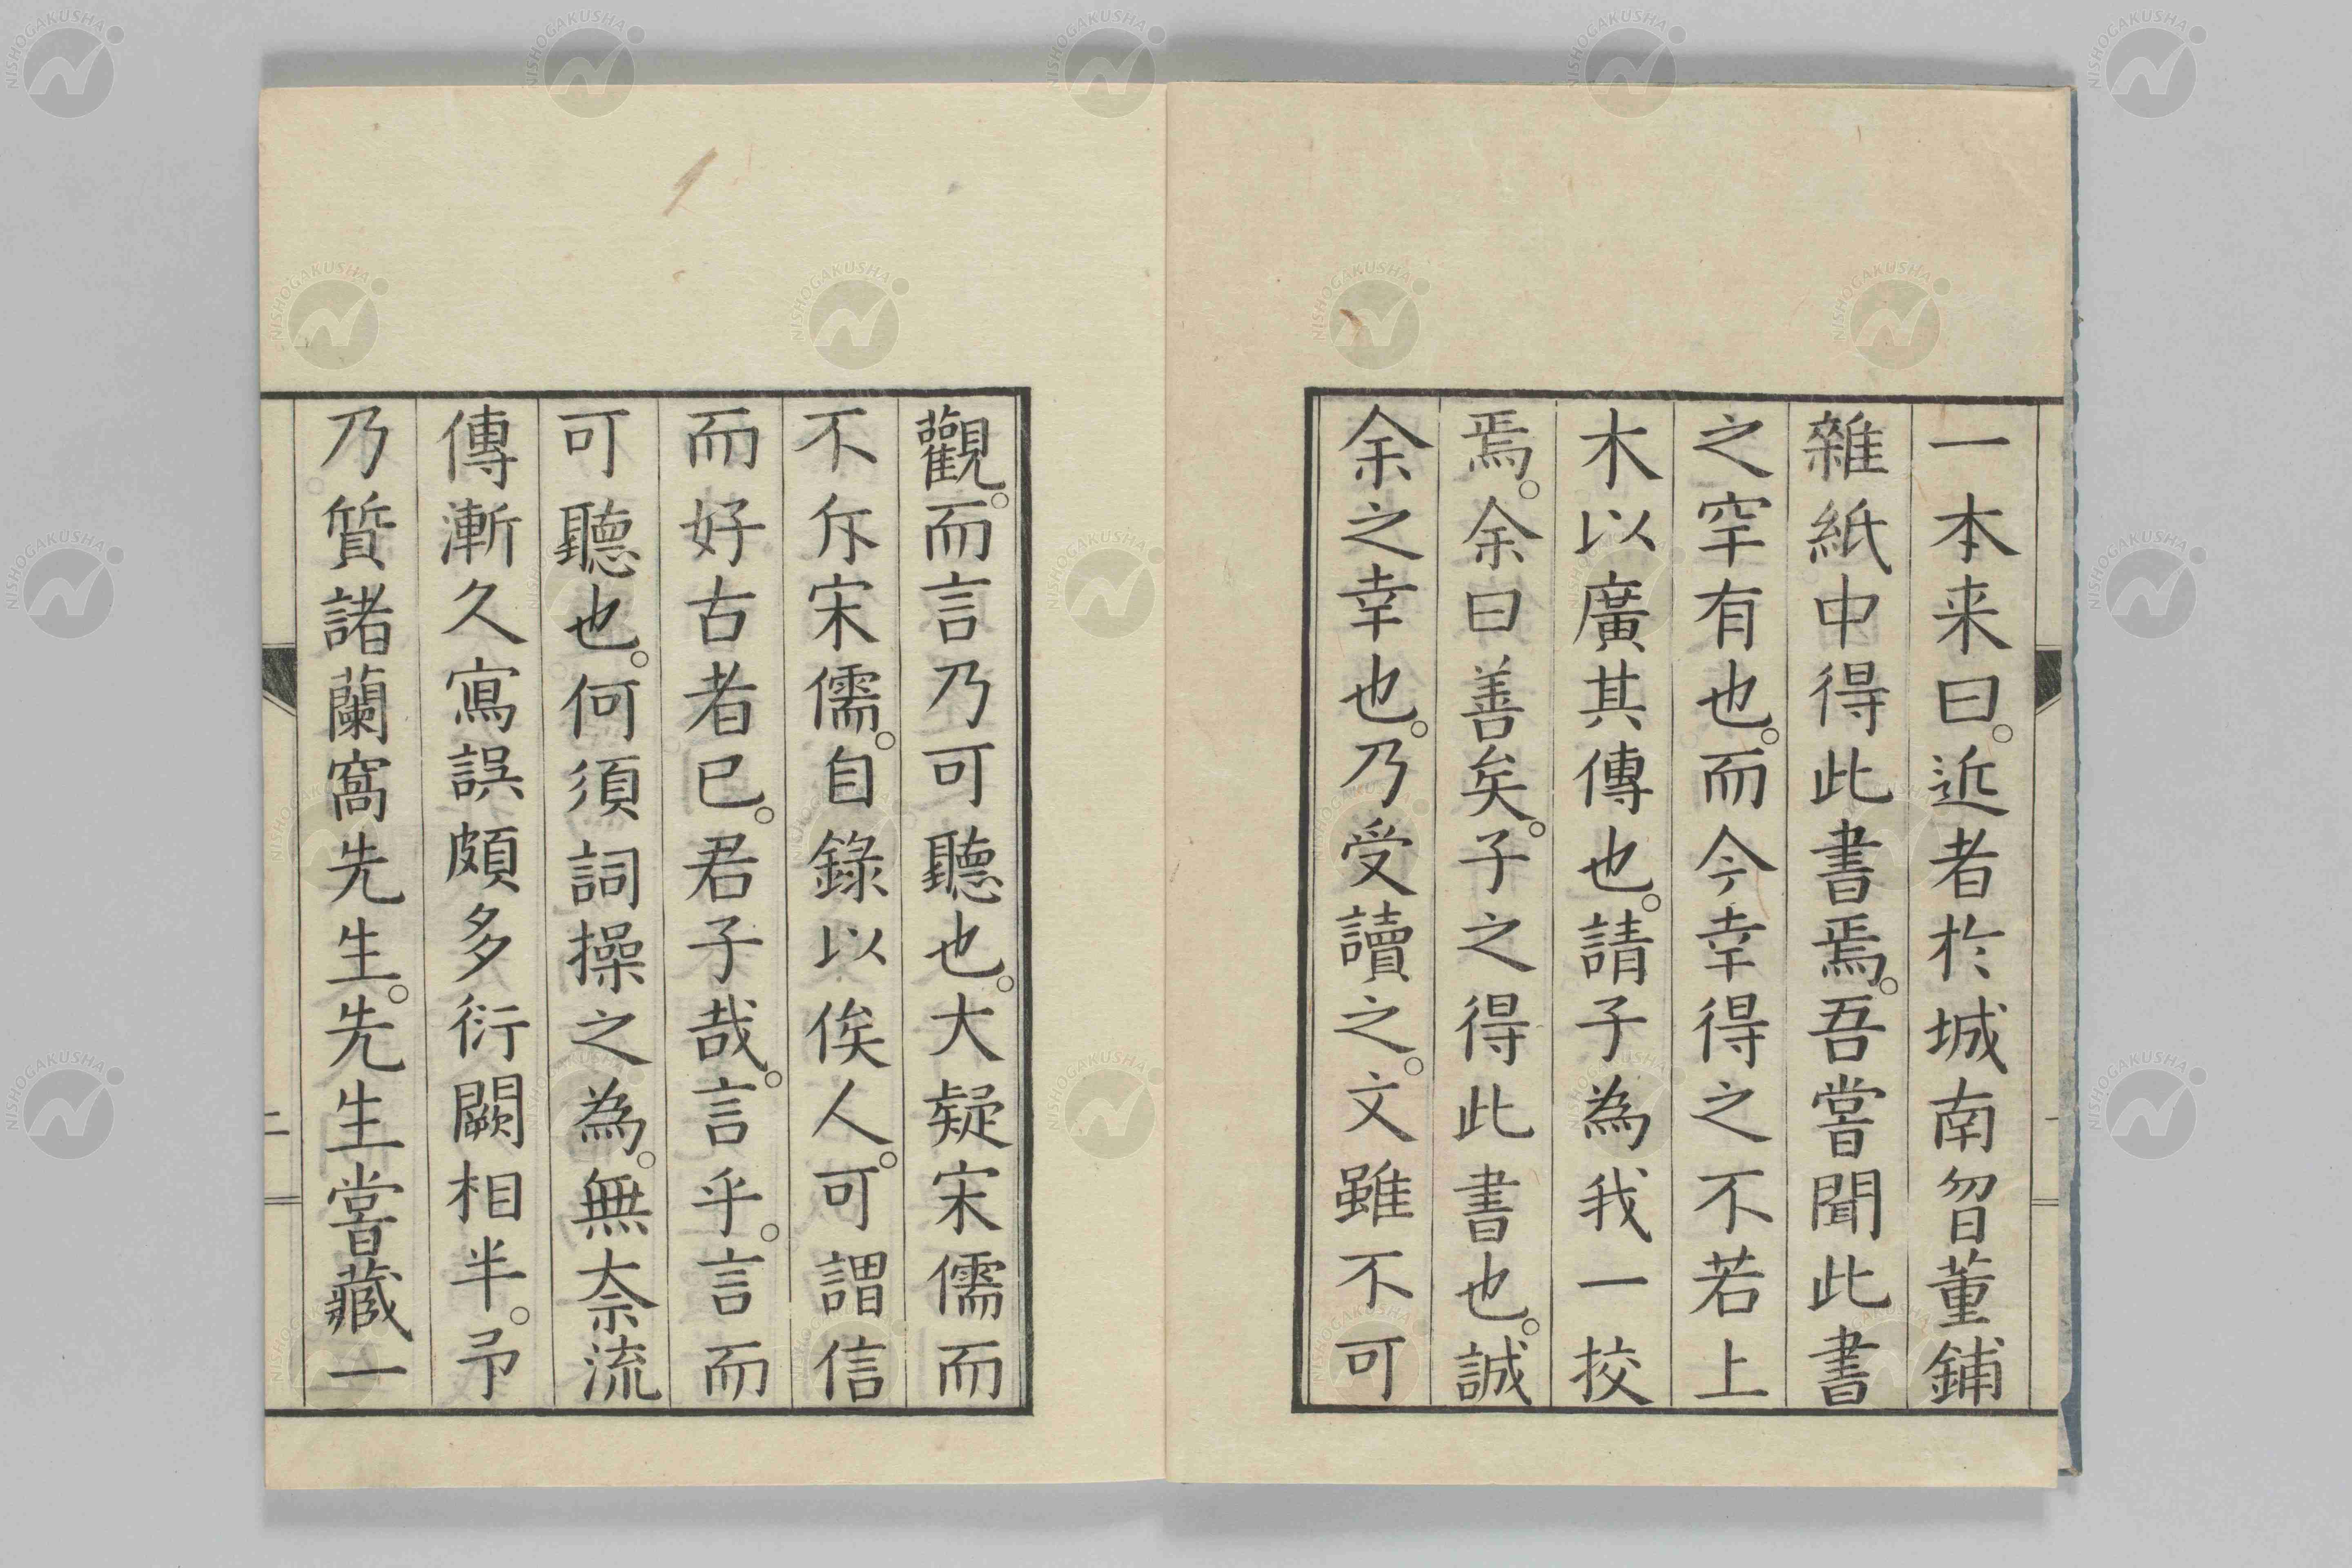 一本来曰。近者於城南曶董鋪
雜紙中得此書焉。吾嘗聞此書
之罕有也。而今幸得之不若上
木以廣其傳也。請子為我一挍
焉。余曰善矣。子之得此書也。誠
余之幸也。乃受讀之。文雖不可
觀。而言乃可聽也。大疑宋儒而
不斥宋儒。自錄以俟人。可謂信
而好古者已。君子哉。言乎。言而
可聽也。何須詞操之為。無奈流
傳漸久寫誤頗多衍闕相半。予
乃質諸蘭窩先生。先生嘗藏一
二
NISHOGAKUSHA